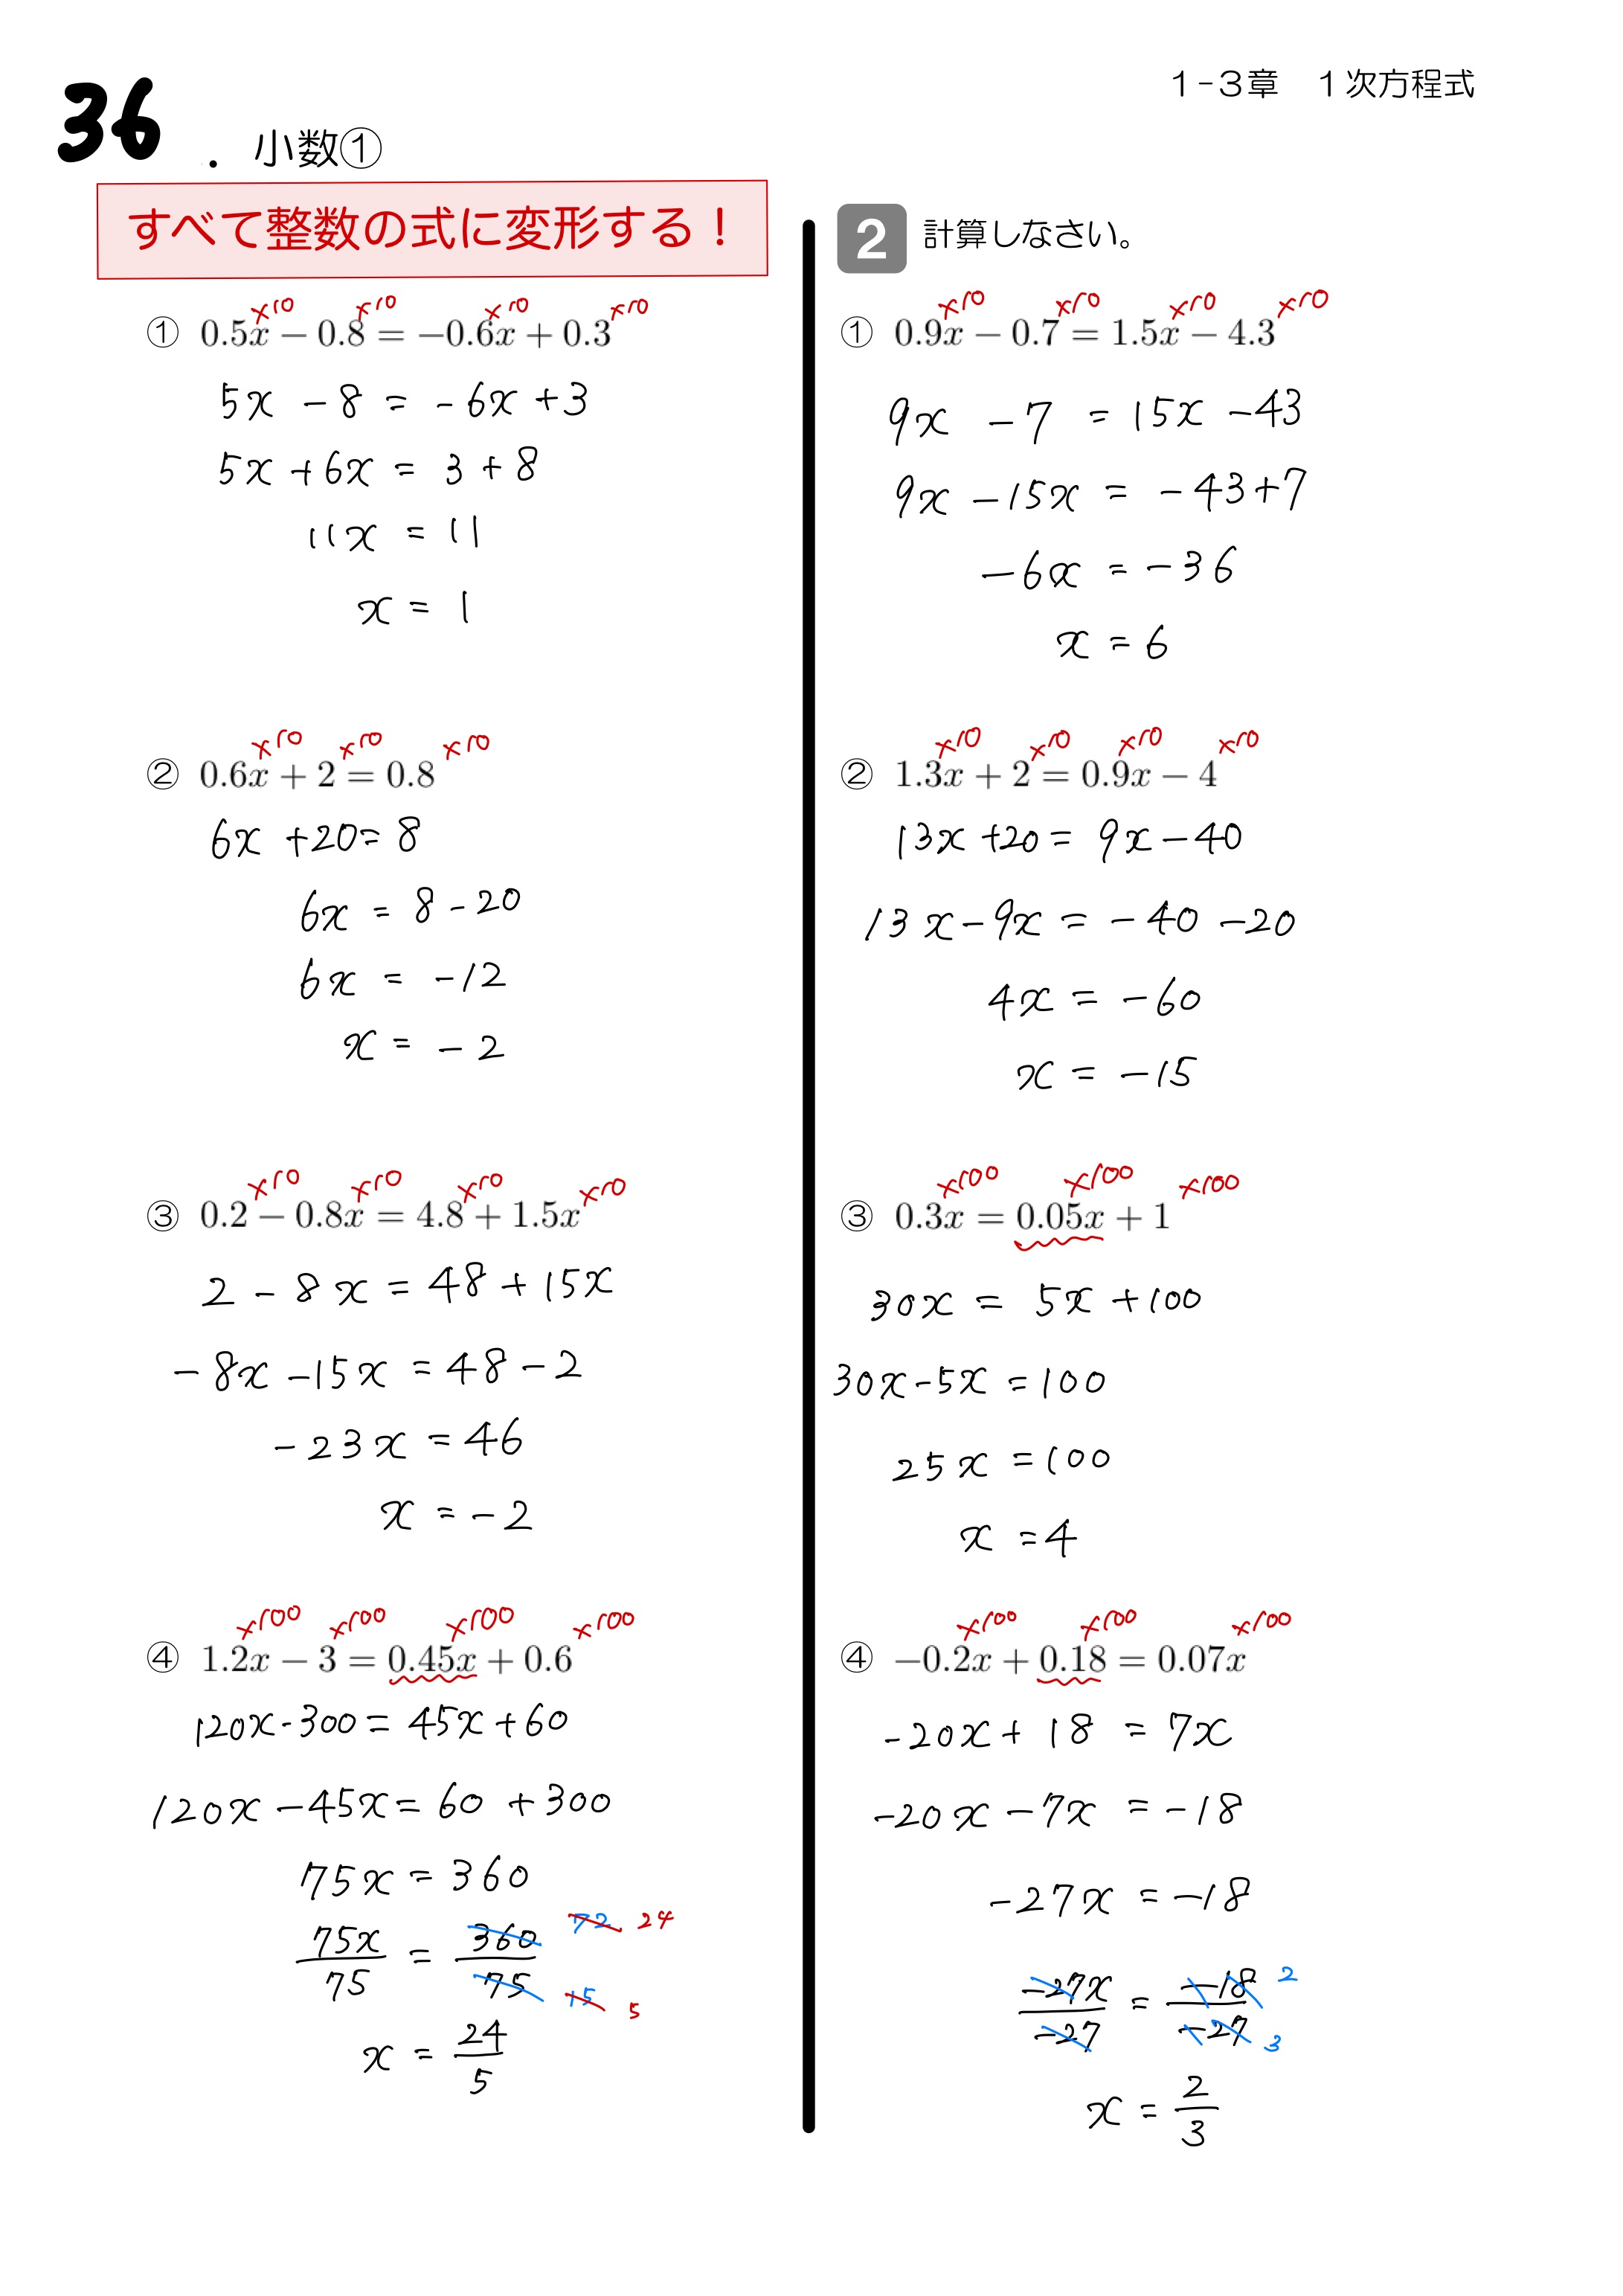 1-3章　1次方程式
36 . 小数①
すべて整数の式に変形する！
×10 ×10 ×10 ×10
① 0.5x − 0.8 = −0.6x + 0.3
5x − 8 = − 6x + 3
5x + 6x = 3 + 8
11x = 11
x = 1
×10 ×10 ×10
② 0.6x + 2 = 0.8
6x + 20 = 8
6x = 8 − 20
6x = −12
x = − 2
×10 ×10 ×10 ×10
③ 0.2 − 0.8x = 4.8 + 1.5x
2 − 8x = 48 + 15x
− 8x − 15x = 48 − 2
− 23x = 46
x = − 2
×100 ×100 ×100 ×100
④ 1.2x − 3 = 0.45x + 0.6
120x - 300 = 45x + 60
120x − 45x = 60 + 300
75x = 360
75x/75 = 360/75 72 24 15 5
x = 24/5
2 計算しなさい。
×10 ×10 ×10 ×10
① 0.9x − 0.7 = 1.5x − 4.3
9x − 7 = 15x − 43
9x − 15x = − 43 + 7
− 6x = − 36
x = 6
×10 ×10 ×10 ×10
② 1.3x + 2 = 0.9x − 4
13x + 20 = 9x − 40
13x − 9x = − 40 − 20
4x = − 60
x = − 15
×100 ×100 ×100
③ 0.3x = 0.05x + 1
30x = 5x + 100
30x − 5x = 100
25x = 100
x = 4
×100 ×100 ×100
④ −0.2x + 0.18 = 0.07x
- 20x + 18 = 7x
- 20x − 7x = − 18
− 27x = − 18
−27x/−27 = −18/−27 2 3
x = 2/3